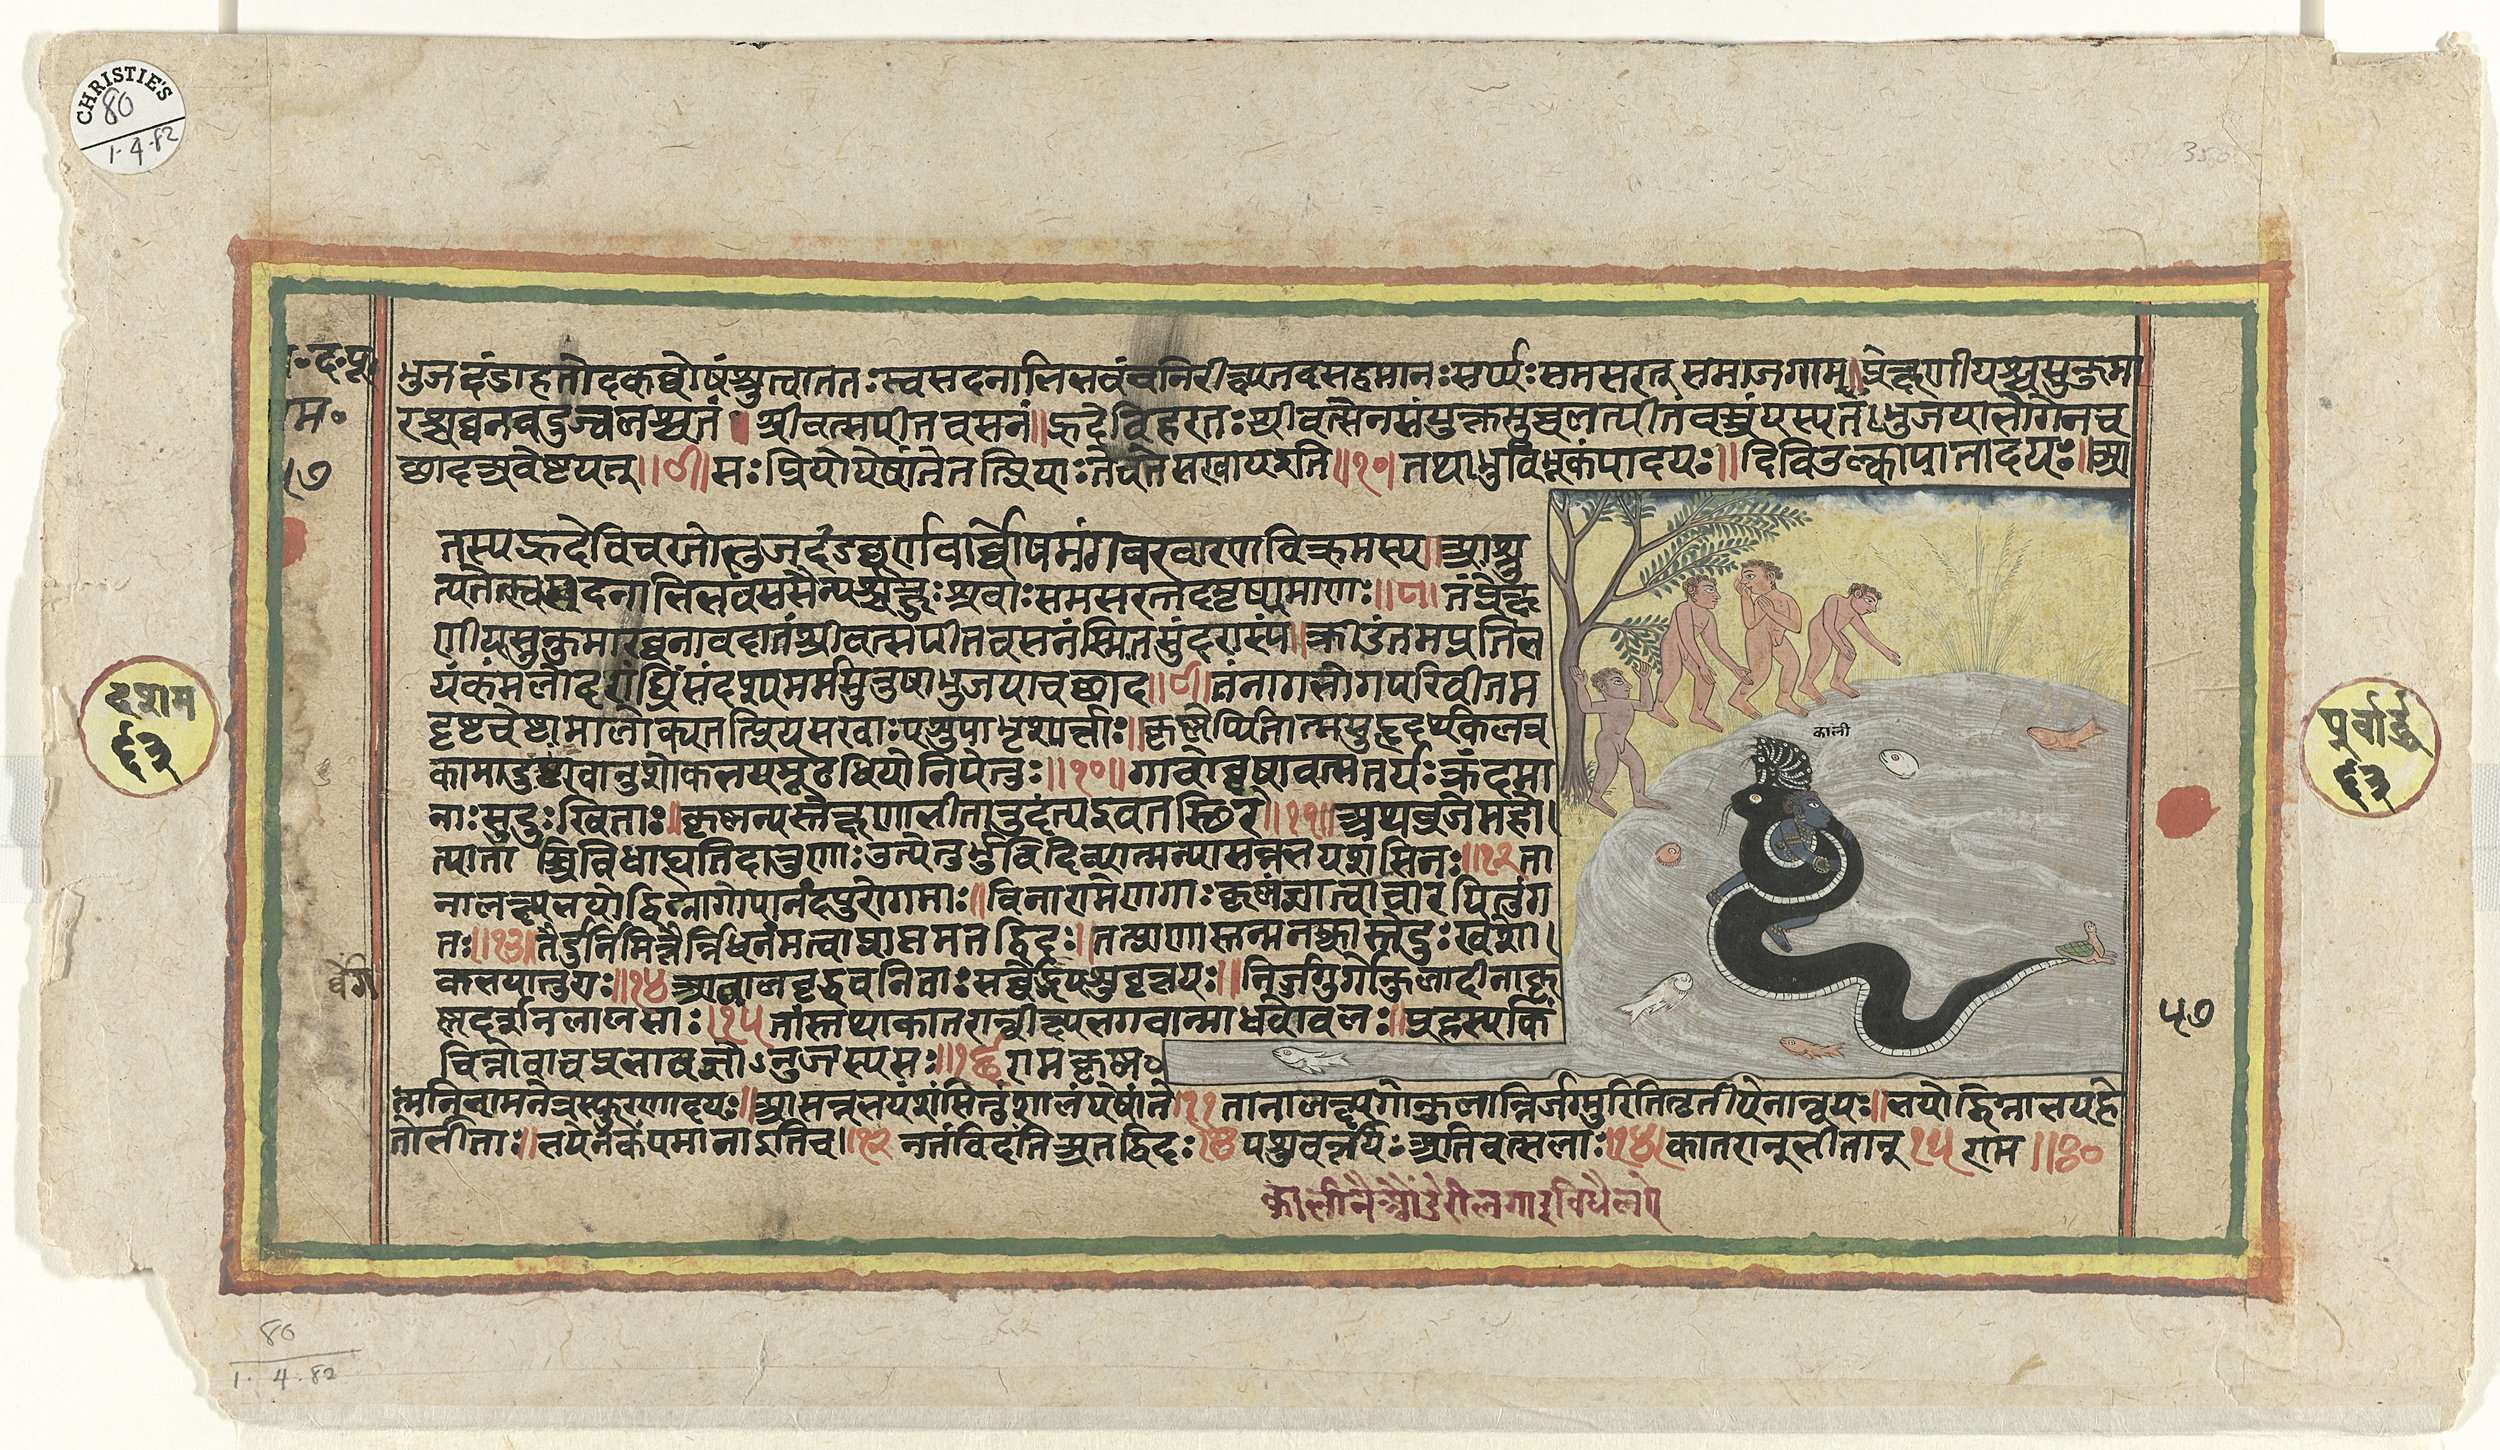 भा॰द॰पू
भुजदंडाहतोदकघोषंश्रुत्वाततःस्वसदनाभिभवंचनिरीक्ष्यतदसहमानःसर्पःसमसरत् समाजगाम॥प्रेक्षणीयश्चसुकुमा
रश्चघनवदुज्वलश्चतं॥श्रीवत्सपीतवसनं॥ह्रदेविहरतःश्रीवत्सेनसंयुक्तमुच्चलत्पीतंवस्त्रंयस्यतं।भुजयाभोगेनच
छादअवेष्टयत्॥९॥सःप्रियोयेषांते तत्प्रियाःतेचतेसखायइति॥१०॥तथाभुविभूकंपादयः॥दिविउल्कापातादयः॥आ
तस्यह्रदेविहरतोभुजदंडघूर्णवार्घोषमंगवरवारणविक्रमस्य॥आश्रु
त्यतत्स्वसदनाभिभवंससैन्यश्चक्षुःश्रवाःसमसरत्तदमृष्यमाणः॥८॥तंप्रेक्ष
णीयसुकुमारघनावदातंश्रीवत्सपीतवसनंस्मितसुंदरास्यं॥क्रीडंतमप्रतिभ
यंकमलोदरांघ्रिंसंदश्यमर्मसुरुषाभुजयाचछाद॥९॥तंनागभोगपरिवीतम
दृष्टचेष्टामालोक्यतत्प्रियसखाःपशुपाभृशार्त्ताः॥कृष्णेर्पितात्मसुहृदर्थकलत्र
कामादुःखानुशोकभयमूढधियोनिपेतुः॥१०॥गावोवृषावत्सतर्यःक्रंदमा
नाःसुदुःखिताः॥कृष्णेन्यस्तेक्षणाभीतारुदंत्यइवतस्थिरे॥११॥अथव्रजेमहो।
त्पातास्त्रिविधाह्यतिदारुणाः उत्पेतुर्भुविदिव्यात्मन्यासन्नभयशंसिनः॥१२ता
नालक्ष्यभयोद्विग्नागोपानंदपुरोगमाः॥विनारामेणगाःकृष्णंज्ञात्वाचारयितुंग
तं॥१३॥तैर्दुर्निमित्तैर्निधनंमत्वाप्राप्तमतद्विदः॥तत्प्राणास्तन्मनस्कास्तेदुःखशो।
कभयातुराः॥१४आबालवृद्धवनिताःसर्वेंगपशुवृत्तयः॥निर्जग्मुर्गोकुलाद्दीनाःकृ
ष्णदर्शनलालसाः॥१५तांस्तथाकातरान्वीक्ष्यभगवान्माधवोबलः॥प्रहस्यकिं
चिन्नोवाचप्रभावज्ञोऽनुजस्यसः॥१६रामकृष्ण॰
त्मनिवामनेत्रस्फुरणादयः॥आसन्नभयंशंसितुंशीलंयेषांते११तानालक्ष्यगोकुलान्निर्जग्मुरितितृतीयेनान्वयः॥भयोद्विग्नाभयहे
तोभीताः॥भयेनकंपमानाइतिच।१२ नतंविदंतिअतद्विदः१३पशुवृत्तयः अतिवत्सलाः॥१४कातरान्भीतान्१५राम॥७०
कालीनै
काली
दशम
६३
पूर्वार्द्ध
६३
५७
५७
राम॰
CHRISTIE'S
80
1-4-82
350
80
1. 4 .82